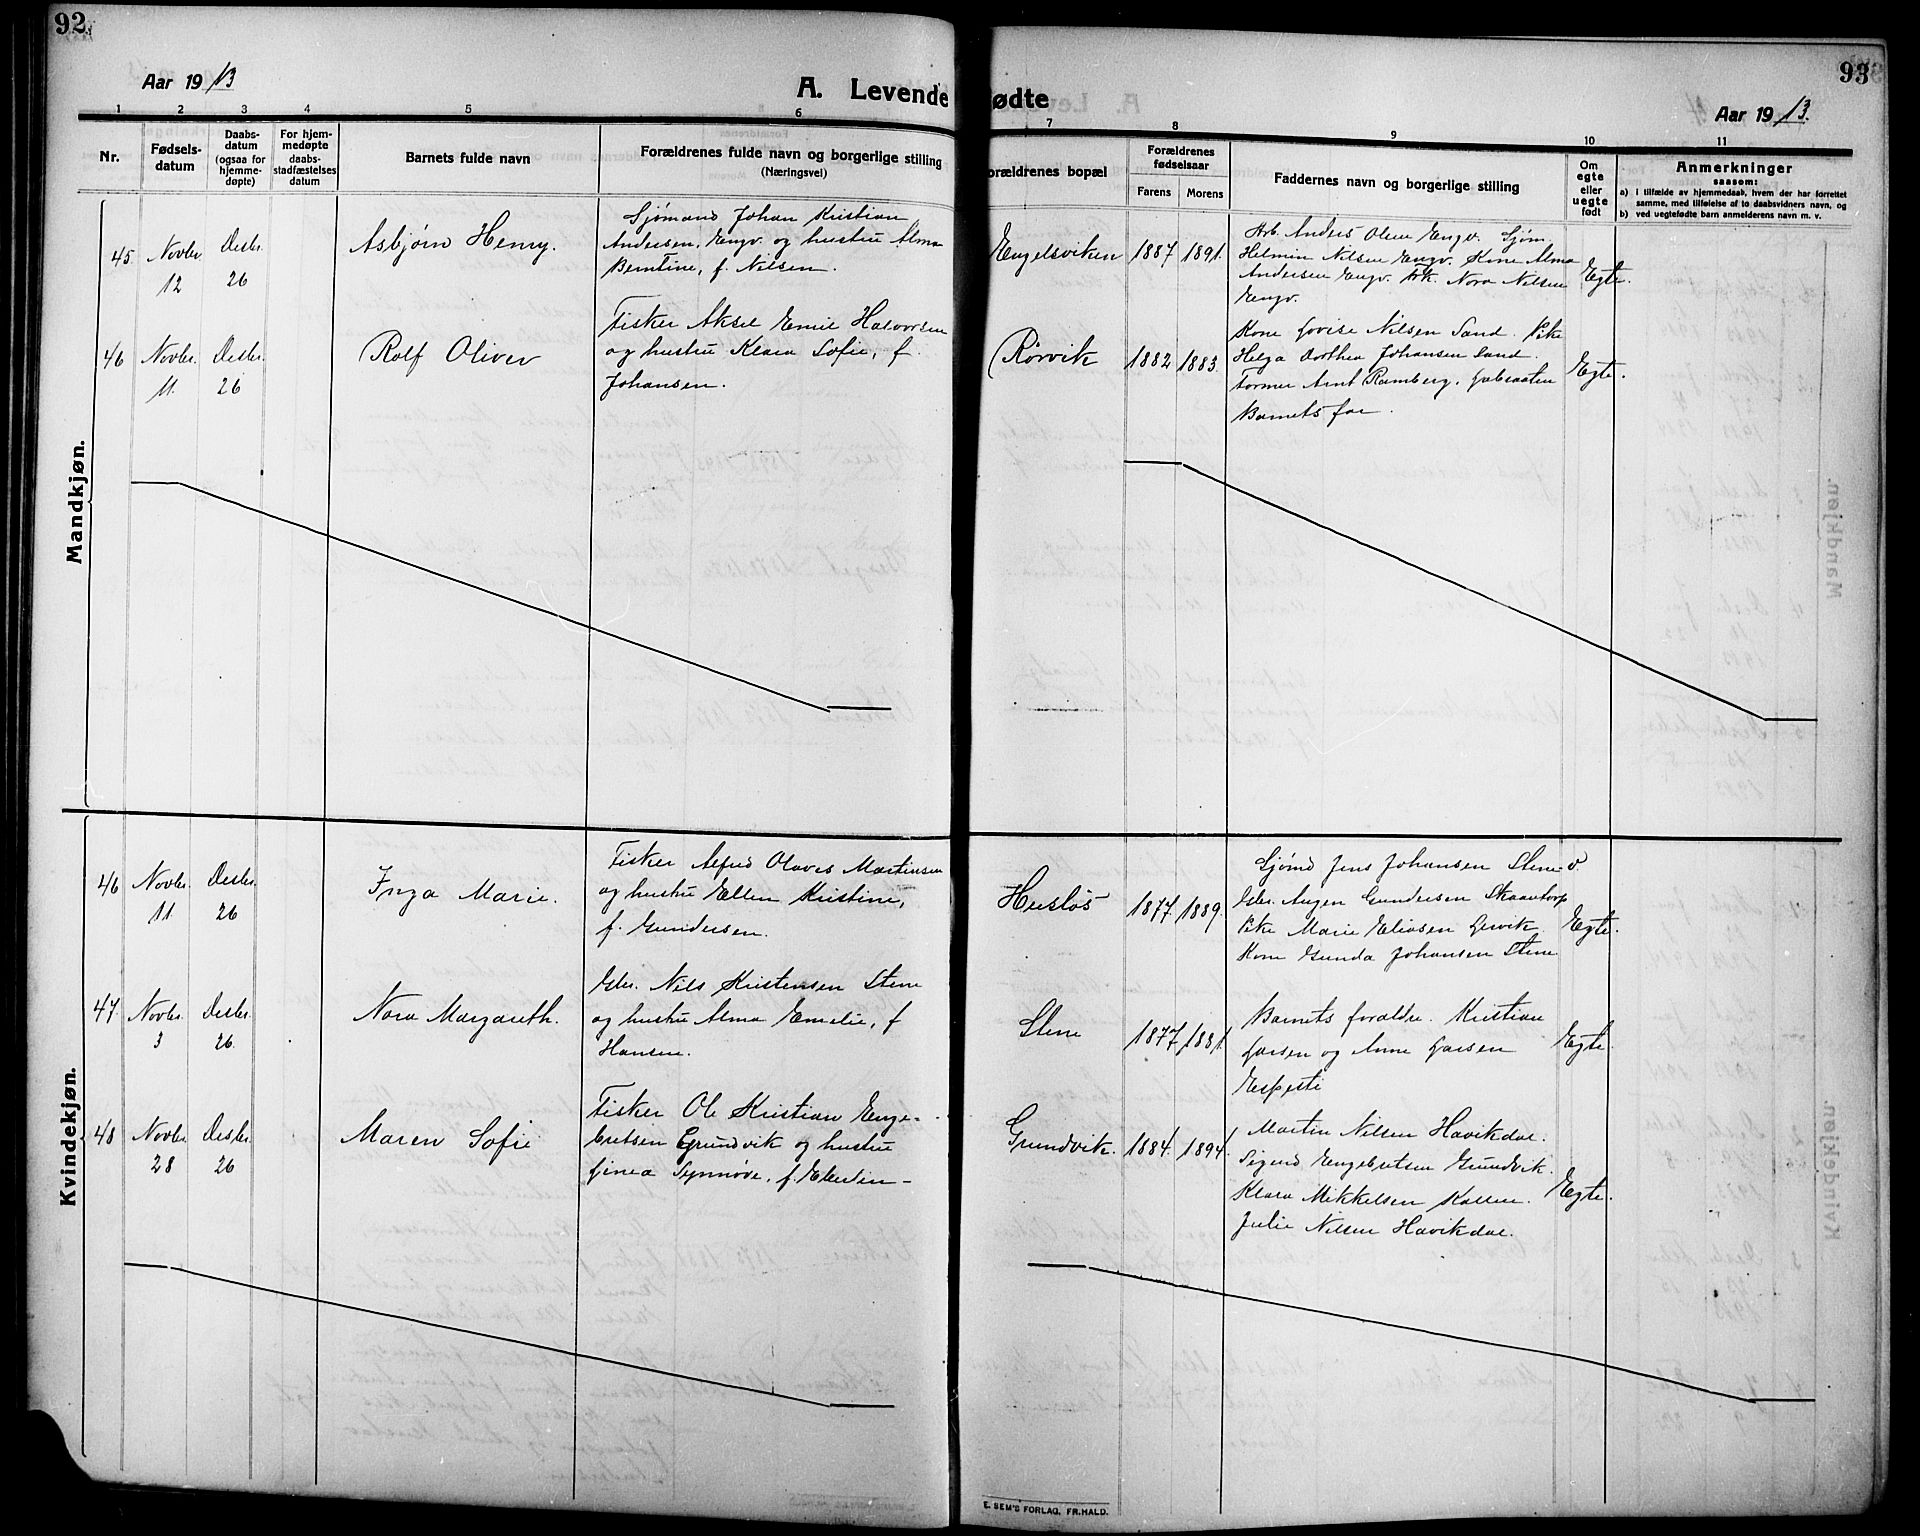 92
93
Aar 1913
A. Levende fødte
Aar 1913.
1 2 3 4 5 6 7 8 9 10 11
Nr.
Fødsels-
datum
Daabs-
datum
(ogsaa for
hjemme-
døpte)
For hjem-
medøpte
daabs-
stadfæstelses
datum
Barnets fulde navn
Forældrenes fulde navn og borgerlige stilling
(Næringsvei)
orældrenes bopæl
Forældrenes
fødselsaar
Farens Morens
Faddernes navn og borgerlige stilling
Om
egte
eller
uegte
født
Anmerkninger
saasom:
a) i tilfælde av hjemmedaab, hvem der har forrettet
samme, med tilføielse af to daabsvidners navn, og
b) ved uegtefødte barn anmelderens navn m. v.
Mandkjøn.
45 Novbr. 12 Desbr. 26
Asbjørn Henry.
Sjømand Johan Kristian
Andersen, Engv. og hustru Alma
Berntine, f. Nilsen.
Engelsviken 1887 1891.
Arb. Anders Olsen Engv. Sjøm.
Helmin Nilsen Engv. Kone Alma
Andersen Engv. Frk. Nora Nilsen
Engv.
Egte.
46 Novbr. 11. Desbr. 26
Rolf Oliver
Fisker Aksel Emil Halvorsen
og hustru Klara Sofie, f.
Johansen.
Rørvik 1882 1883.
Kone Lovise Nilsen Sand. Pike
Helga Dorthea Johansen Sand.
Former Arnt Ramberg,
Barnets far.
Egte.
Kvindekjøn.
46 Novbr. 11 Desbr. 26
Inga Marie.
Fisker Alfred Olaves Martinsen
og hustru Ellen Kristine,
f. Gundersen.
Husløs 1877. 1889.
Sjømd Jens Johansen Stene
Gbr. Augen Gundersen Skaartorp
Pike Marie Eliasen Lervik
Kone Gunda Johansen Stene
Egte.
47. Novbr. 3 Desbr. 26.
Nora Margareth.
Gbr. Nils Kristensen Stene
og hustru Alma Emelie, f
Hansen.
Stene 1877 1881.
Barnets forældre. Kristian
Larsen og Anne Larsen
Egte.
48 Novbr. 28 Desbr. 26
Maren Sofie
Fisker Ole Kristian Enge-
bretsen Grundvik og hustru
Linea Synnøve, f.
Grundvik. 1884. 1894.
Martin Nilsen Havikdal.
Sigurd Engebretsen Grundvik.
Klara Mikkelsen Kallen.
Julie Nilsen Havikdal.
Egte.
E. SEM'S FORLAG, FR.HALD.